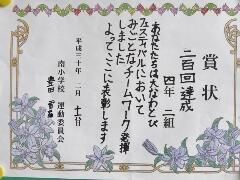 賞状
二百回達成
四年二組
あなたたちは大なわとび
フェスティバルにおいて
みごとなチームワークを発揮
しました
よってここに表彰します
平成三十年二月
南小学校 運動委員会